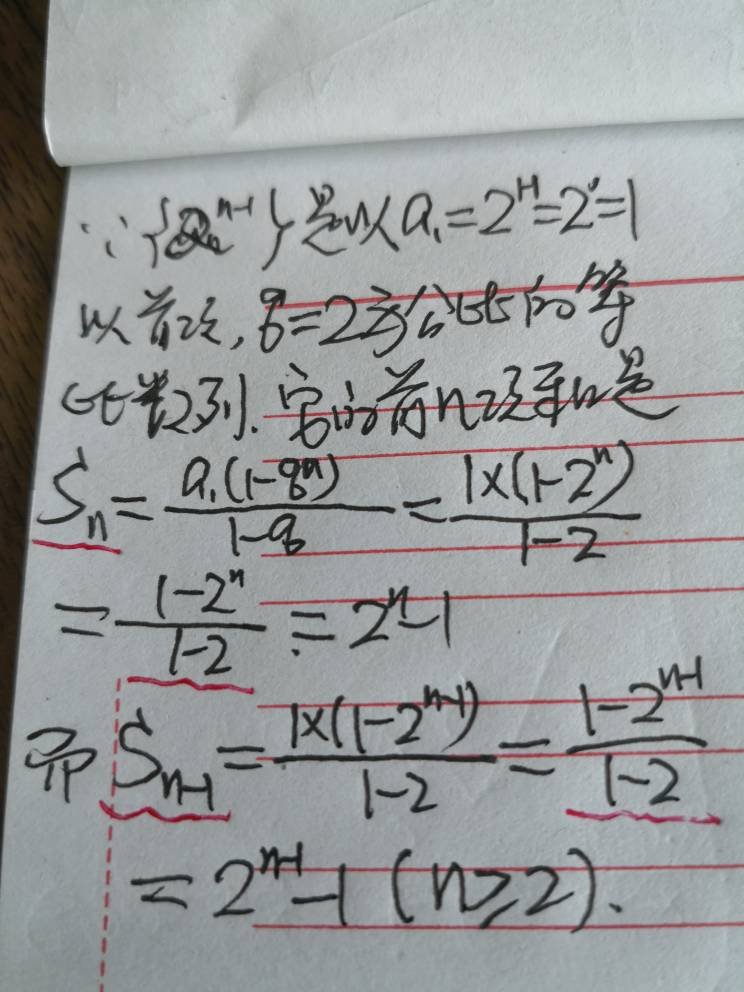 ∵{2ⁿ⁻¹}是以a₁=2¹⁻¹=2⁰=1
以首项,q=2为公比的等
比数列.它的前n项和是
Sₙ=a₁(1-qⁿ)/(1-q)=1×(1-2ⁿ)/(1-2)
=(1-2ⁿ)/(1-2)=2ⁿ-1
而Sₙ₋₁=1×(1-2ⁿ⁻¹)/(1-2)=(1-2ⁿ⁻¹)/(1-2)
=2ⁿ⁻¹-1(n≥2).